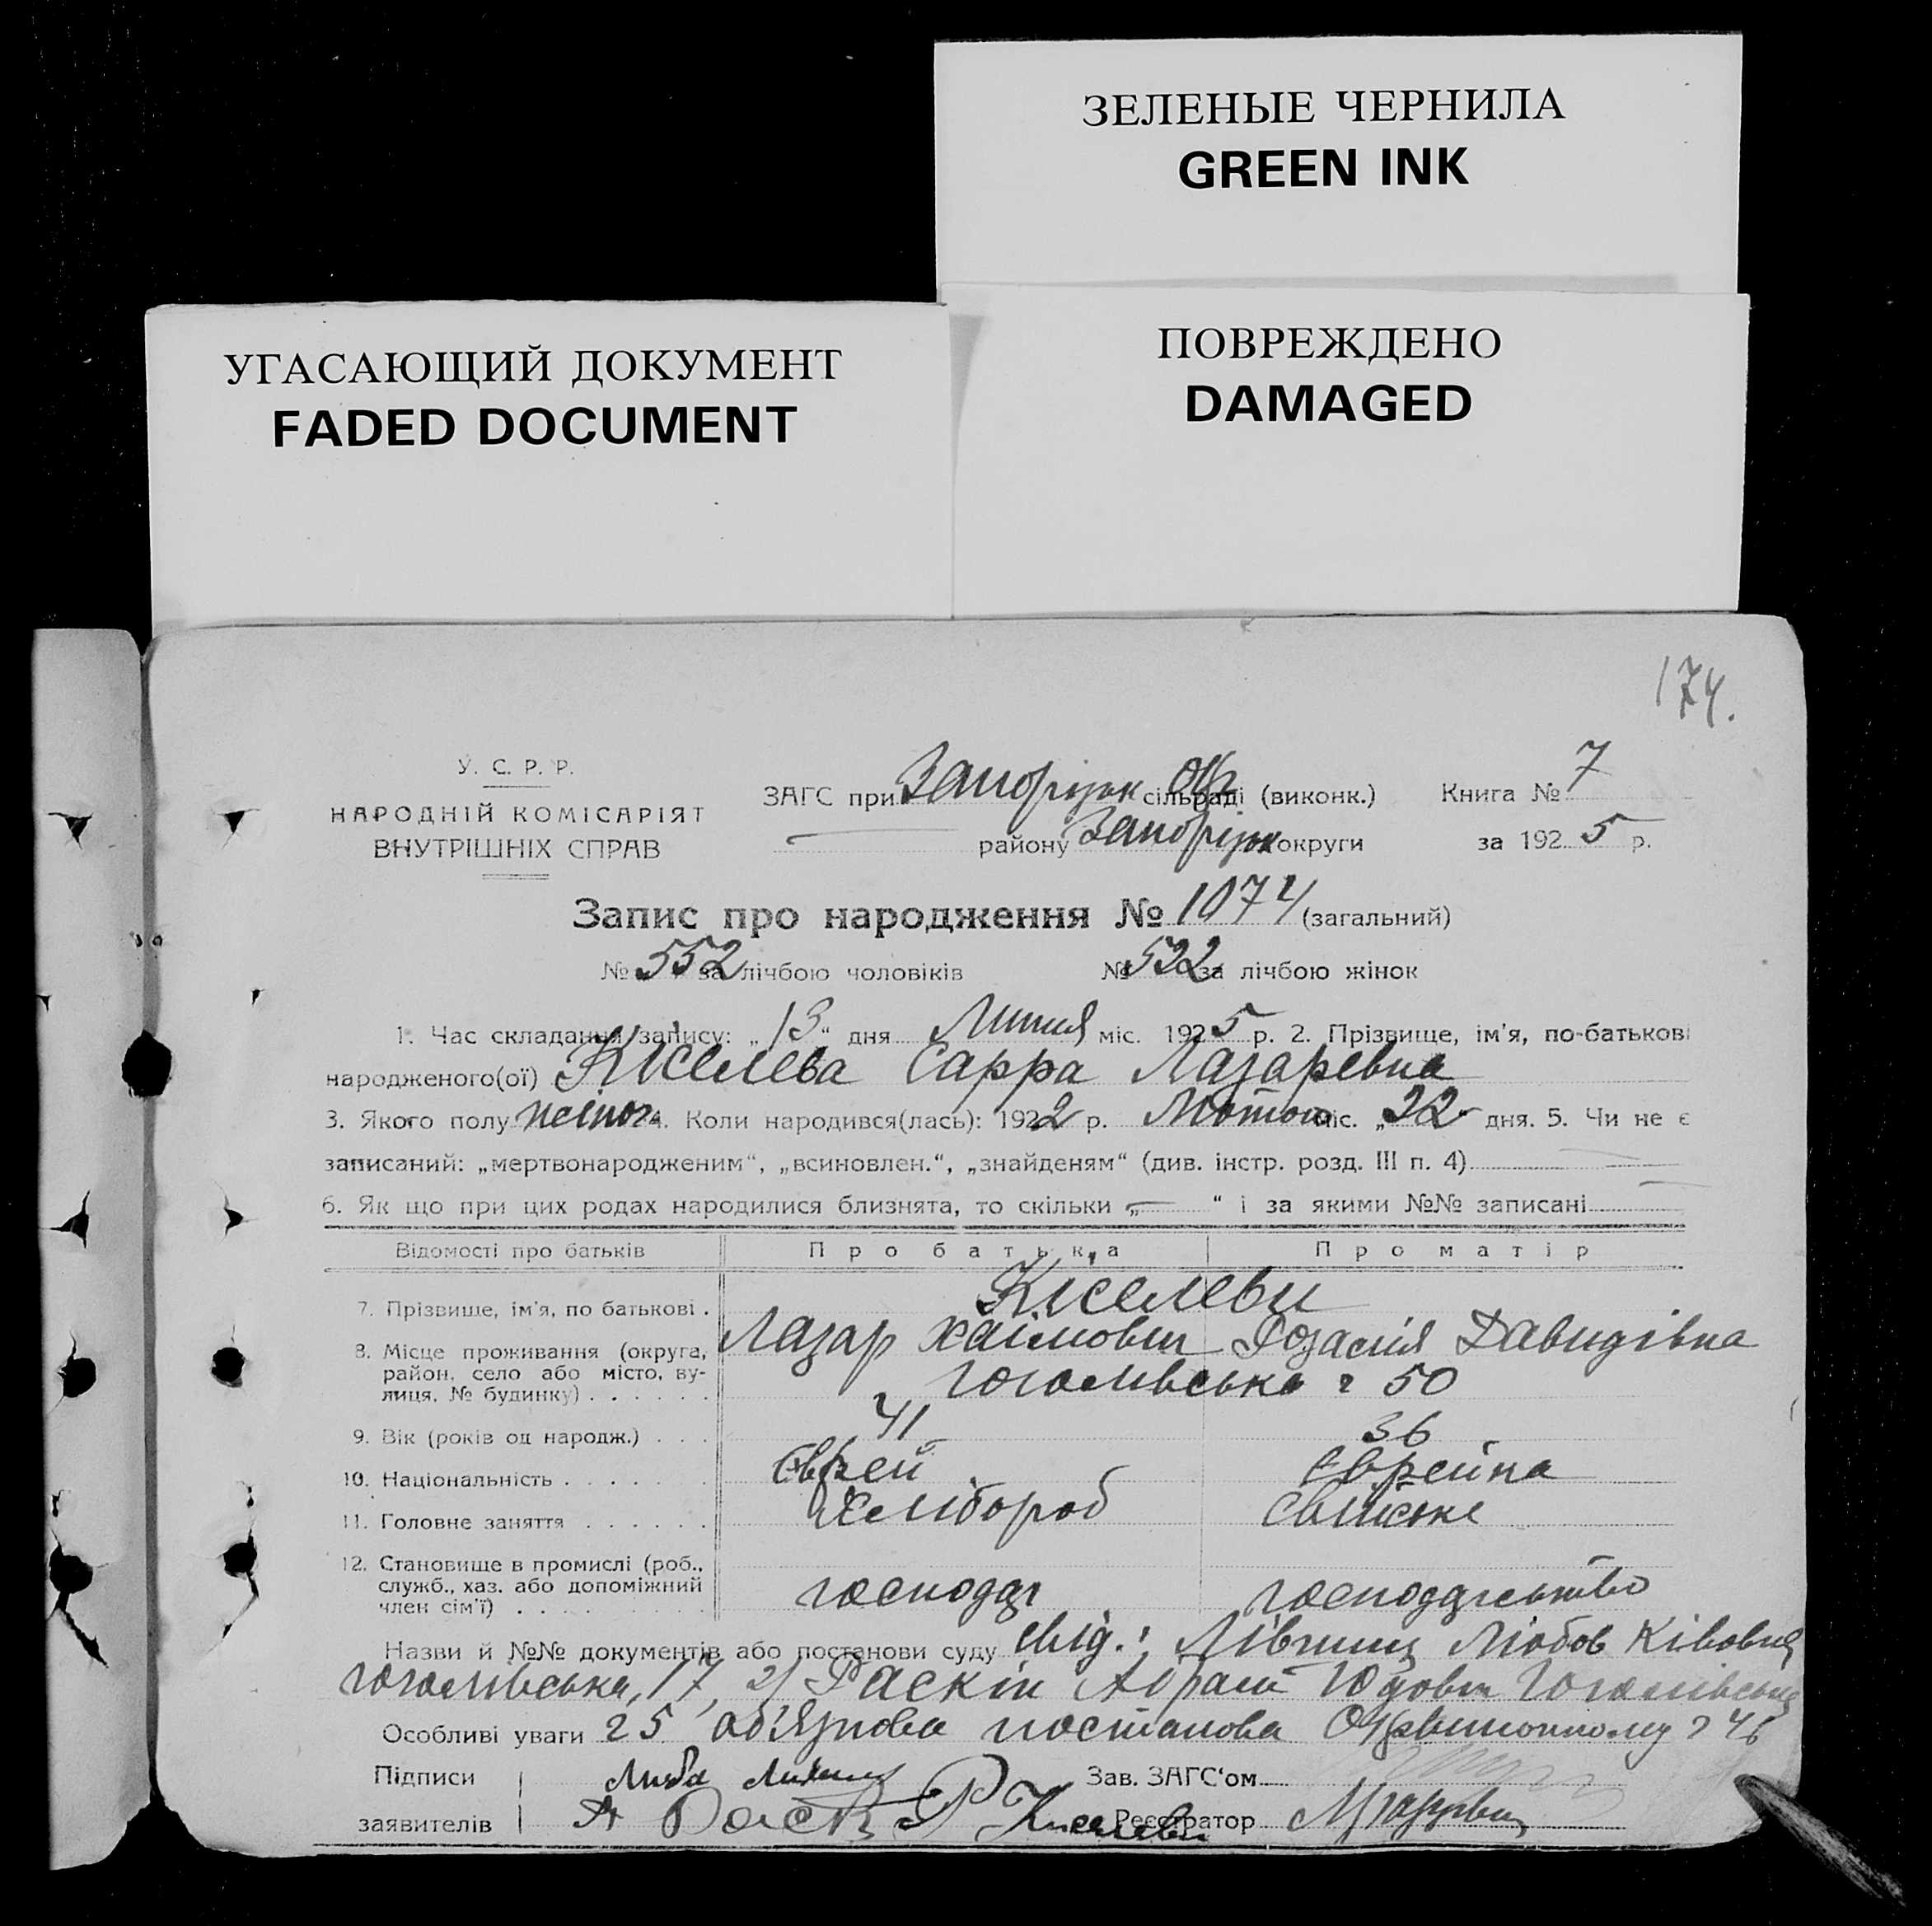 ЗЕЛЕНЫЕ ЧЕРНИЛА
GREEN INK
УГАСАЮЩИЙ ДОКУМЕНТ
FADED DOCUMENT
ПОВРЕЖДЕНО
DAMAGED
174.
У. С. Р. Р.
НАРОДНІЙ КОМІСАРІЯТ
ВНУТРІШНІХ СПРАВ
ЗАГС при Запоріжок сільраді (виконк.) Книга № 7
району Запоріжок округи за 1925 р.
Запис про народження № 1074 (загальний)
№ 552 за лічбою чоловіків № 522 за лічбою жінок
1. Час складання запису: „13“ дня Липня міс. 1925 р. 2. Прізвище, ім'я, по-батькові
народженого(ої) Кіселева Сарра Лазаревна
3. Якого полу жіноч. 4. Коли народився(лась): 1922 р. Лютого міс. „22“ дня. 5. Чи не є
записаний: „мертвонародженим“, „всиновлен.“, „знайденям“ (див. інстр. розд. III п. 4)
6. Як що при цих родах народилися близнята, то скільки „—“ і за якими №№ записані
Відомості про батьків Про батька Про матір
Кіселеви
7. Прізвище, ім'я, по батькові . Лазар Хаімович Розалія Давидівна
8. Місце проживання (округа, район, село або місто, вулиця, № будинку) . . . . . . Гоголівська 50
9. Вік (років од народж.) . . . 41 36
10. Національність . . . . . . Єврей Єврейка
11. Головне заняття . . . . . . Хлібороб Єлиське
12. Становище в промислі (роб., служб., хаз. або допоміжний член сім'ї) . . . . господар господарство
Назви й №№ документів або постанови суду свід.: Лівшиц Любов Ківовна
Гоголівська, 17, 2) Раскін Абрам Юдович Гоголівська
Особливі уваги 25 обʼязкова постанова 46
Підписи Люба Лившиц Зав. ЗАГС'ом
заявителів А Раск Р Киселеви Реєстратор